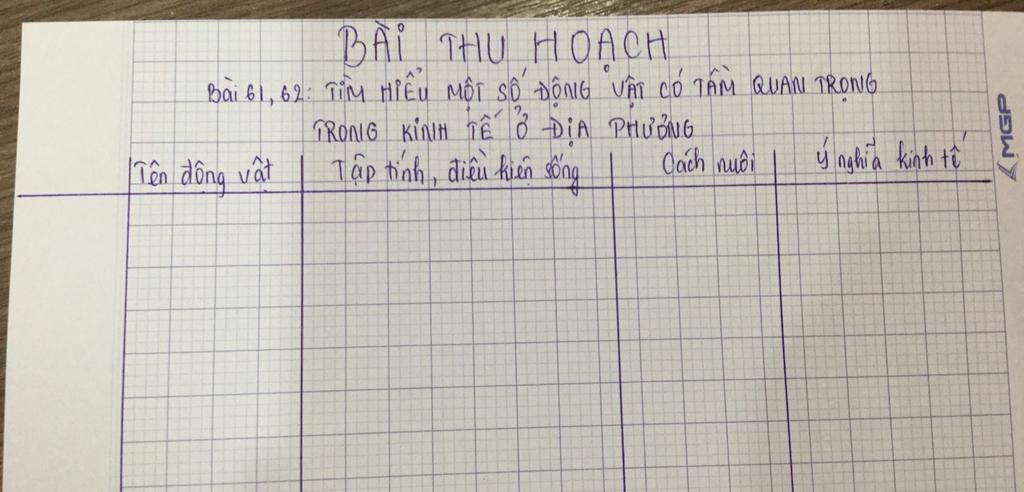 BÀI THU HOẠCH
Bài 61, 62: TÌM HIỂU MỘT SỐ ĐỘNG VẬT CÓ TẦM QUAN TRỌNG
TRONG KINH TẾ Ở ĐỊA PHƯƠNG
Tên động vật Tập tính, điều kiện sống Cách nuôi Ý nghĩa kinh tế
MGP